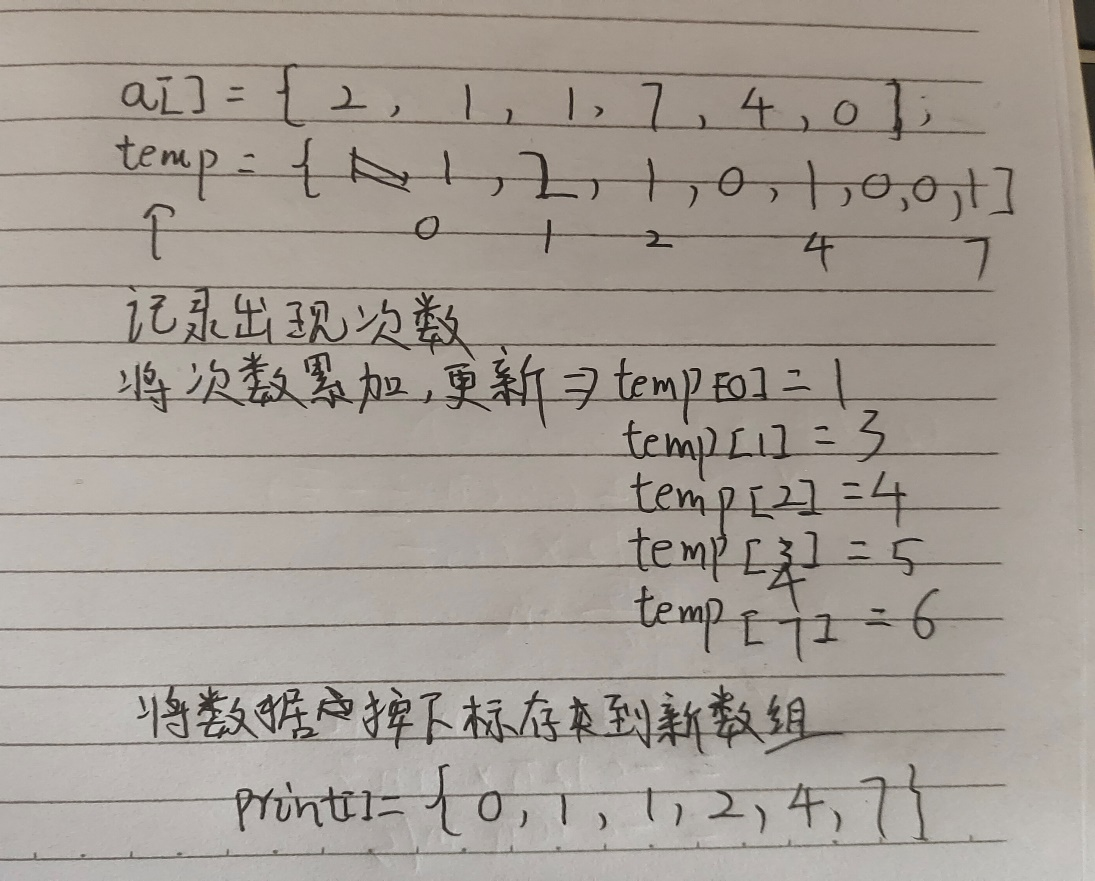 a[] = { 2, 1, 1, 7, 4, 0 };
temp = { 1, 2, 1, 0, 1, 0, 0, 1 ]
↑ 0 1 2 4 7
记录出现次数
将次数累加,更新 ⇒ temp[0] = 1
temp[1] = 3
temp[2] = 4
temp[4] = 5
temp[7] = 6
将数据 按下标存到新数组
print[] = { 0, 1, 1, 2, 4, 7 }